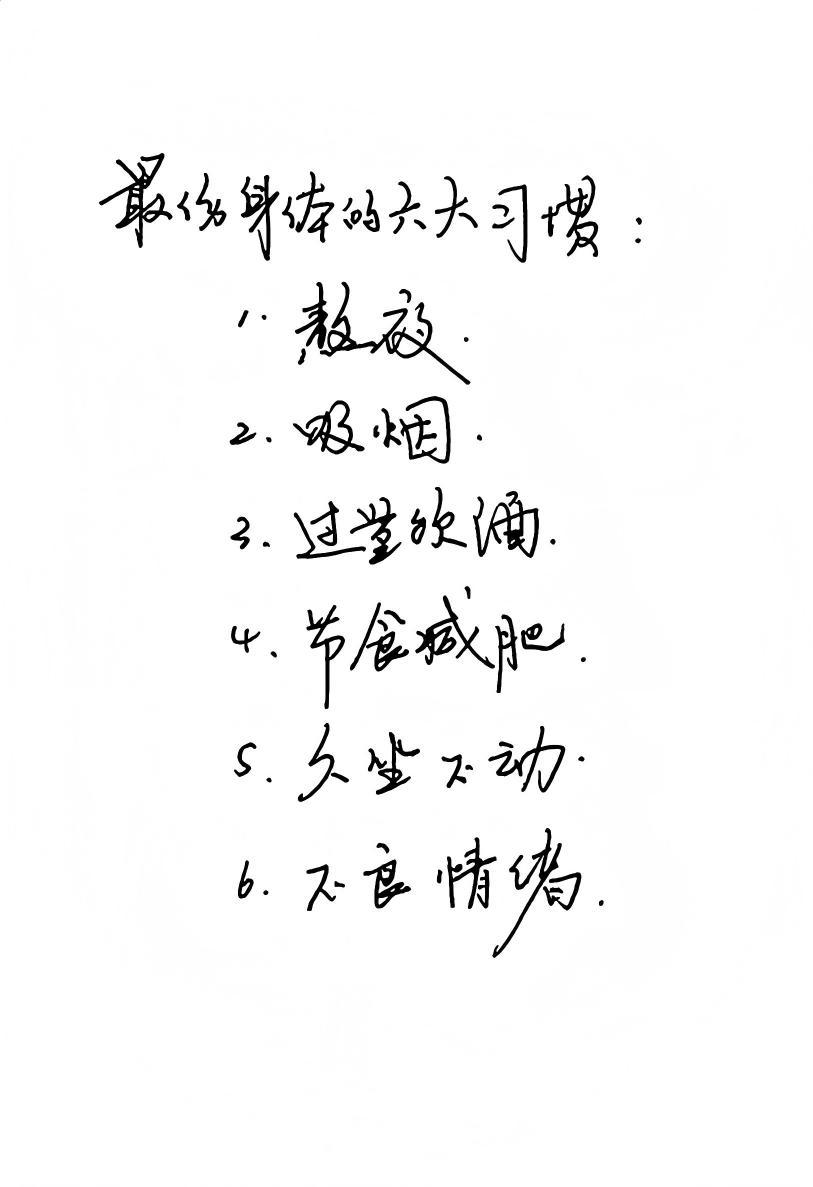 最伤身体的六大习惯:
1. 熬夜.
2. 吸烟.
3. 过量饮酒.
4. 节食减肥.
5. 久坐不动.
6. 不良情绪.